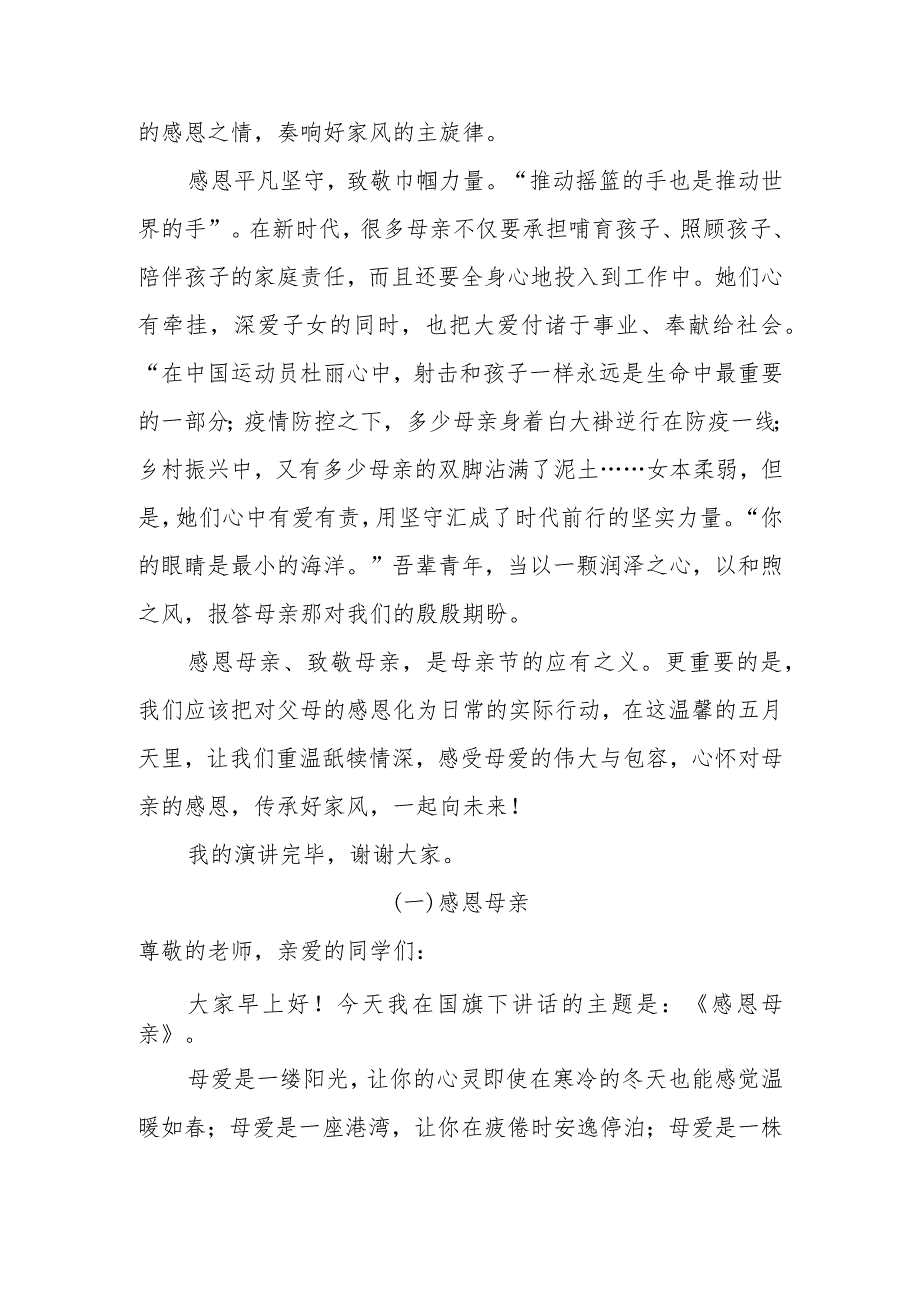 的感恩之情，奏响好家风的主旋律。
感恩平凡坚守，致敬巾帼力量。“推动摇篮的手也是推动世
界的手”。在新时代，很多母亲不仅要承担哺育孩子、照顾孩子、
陪伴孩子的家庭责任，而且还要全身心地投入到工作中。她们心
有牵挂，深爱子女的同时，也把大爱付诸于事业、奉献给社会。
“在中国运动员杜丽心中，射击和孩子一样永远是生命中最重要
的一部分；疫情防控之下，多少母亲身着白大褂逆行在防疫一线；
乡村振兴中，又有多少母亲的双脚沾满了泥土……女本柔弱，但
是，她们心中有爱有责，用坚守汇成了时代前行的坚实力量。“你
的眼睛是最小的海洋。”吾辈青年，当以一颗润泽之心，以和煦
之风，报答母亲那对我们的殷殷期盼。
感恩母亲、致敬母亲，是母亲节的应有之义。更重要的是，
我们应该把对父母的感恩化为日常的实际行动，在这温馨的五月
天里，让我们重温舐犊情深，感受母爱的伟大与包容，心怀对母
亲的感恩，传承好家风，一起向未来！
我的演讲完毕，谢谢大家。
(一)感恩母亲
尊敬的老师，亲爱的同学们：
大家早上好！今天我在国旗下讲话的主题是：《感恩母
亲》。
母爱是一缕阳光，让你的心灵即使在寒冷的冬天也能感觉温
暖如春；母爱是一座港湾，让你在疲倦时安逸停泊；母爱是一株